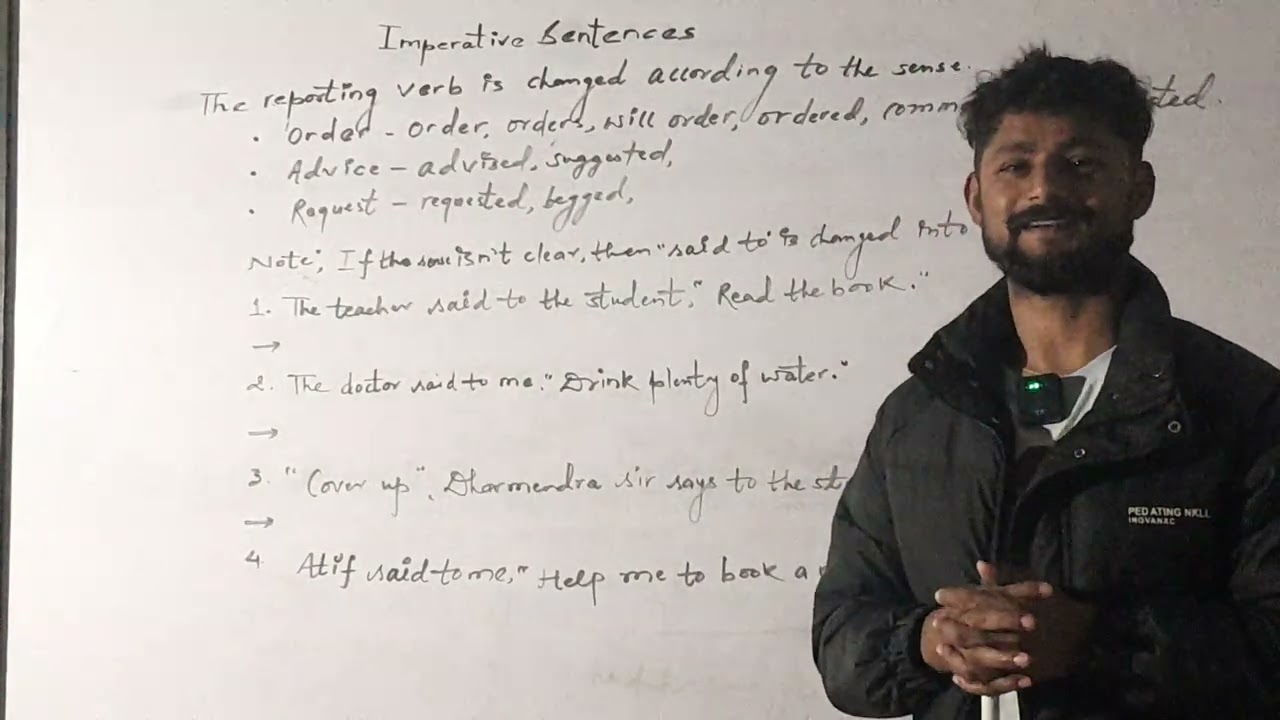 Imperative Sentences
The reporting verb is changed according to the sense.
• Order - order, orders, will order, ordered,
• Advice - advised, suggested,
• Request - requested, begged,
Note: If the sense isn't clear, then "said to" is changed into
1. The teacher said to the student, "Read the book."
→
2. The doctor said to me. "Drink plenty of water."
→
3. "Cover up", Dharmendra sir says to the
→
4. Atif said to me, "Help me to book a
PED ATING NKLL
INOVANAC